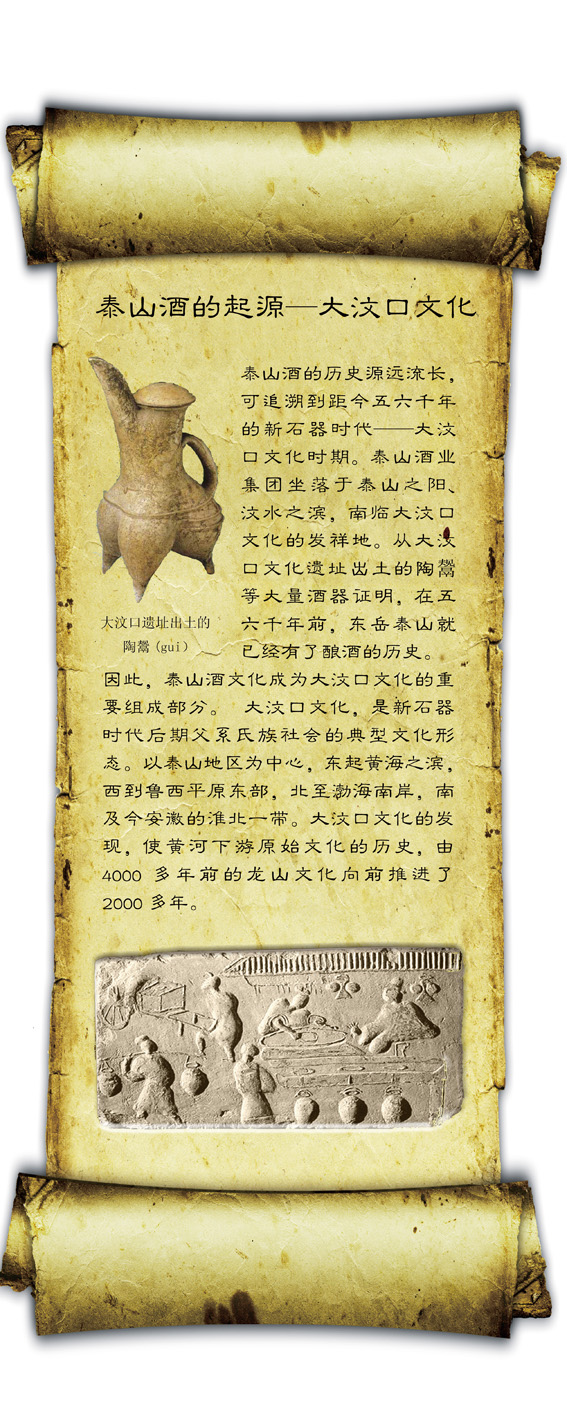 泰山酒的起源—大汶口文化
泰山酒的历史源远流长，
可追溯到距今五六千年
的新石器时代——大汶
口文化时期。泰山酒业
集团坐落于泰山之阳、
汶水之滨，南临大汶口
文化的发祥地。从大汶
口文化遗址出土的陶鬶
等大量酒器证明，在五
六千年前，东岳泰山就
已经有了酿酒的历史。
大汶口遗址出土的
陶鬶（gui）
因此，泰山酒文化成为大汶口文化的重
要组成部分。 大汶口文化，是新石器
时代后期父系氏族社会的典型文化形
态。以泰山地区为中心，东起黄海之滨，
西到鲁西平原东部，北至渤海南岸，南
及今安徽的淮北一带。大汶口文化的发
现，使黄河下游原始文化的历史，由
4000 多年前的龙山文化向前推进了
2000 多年。